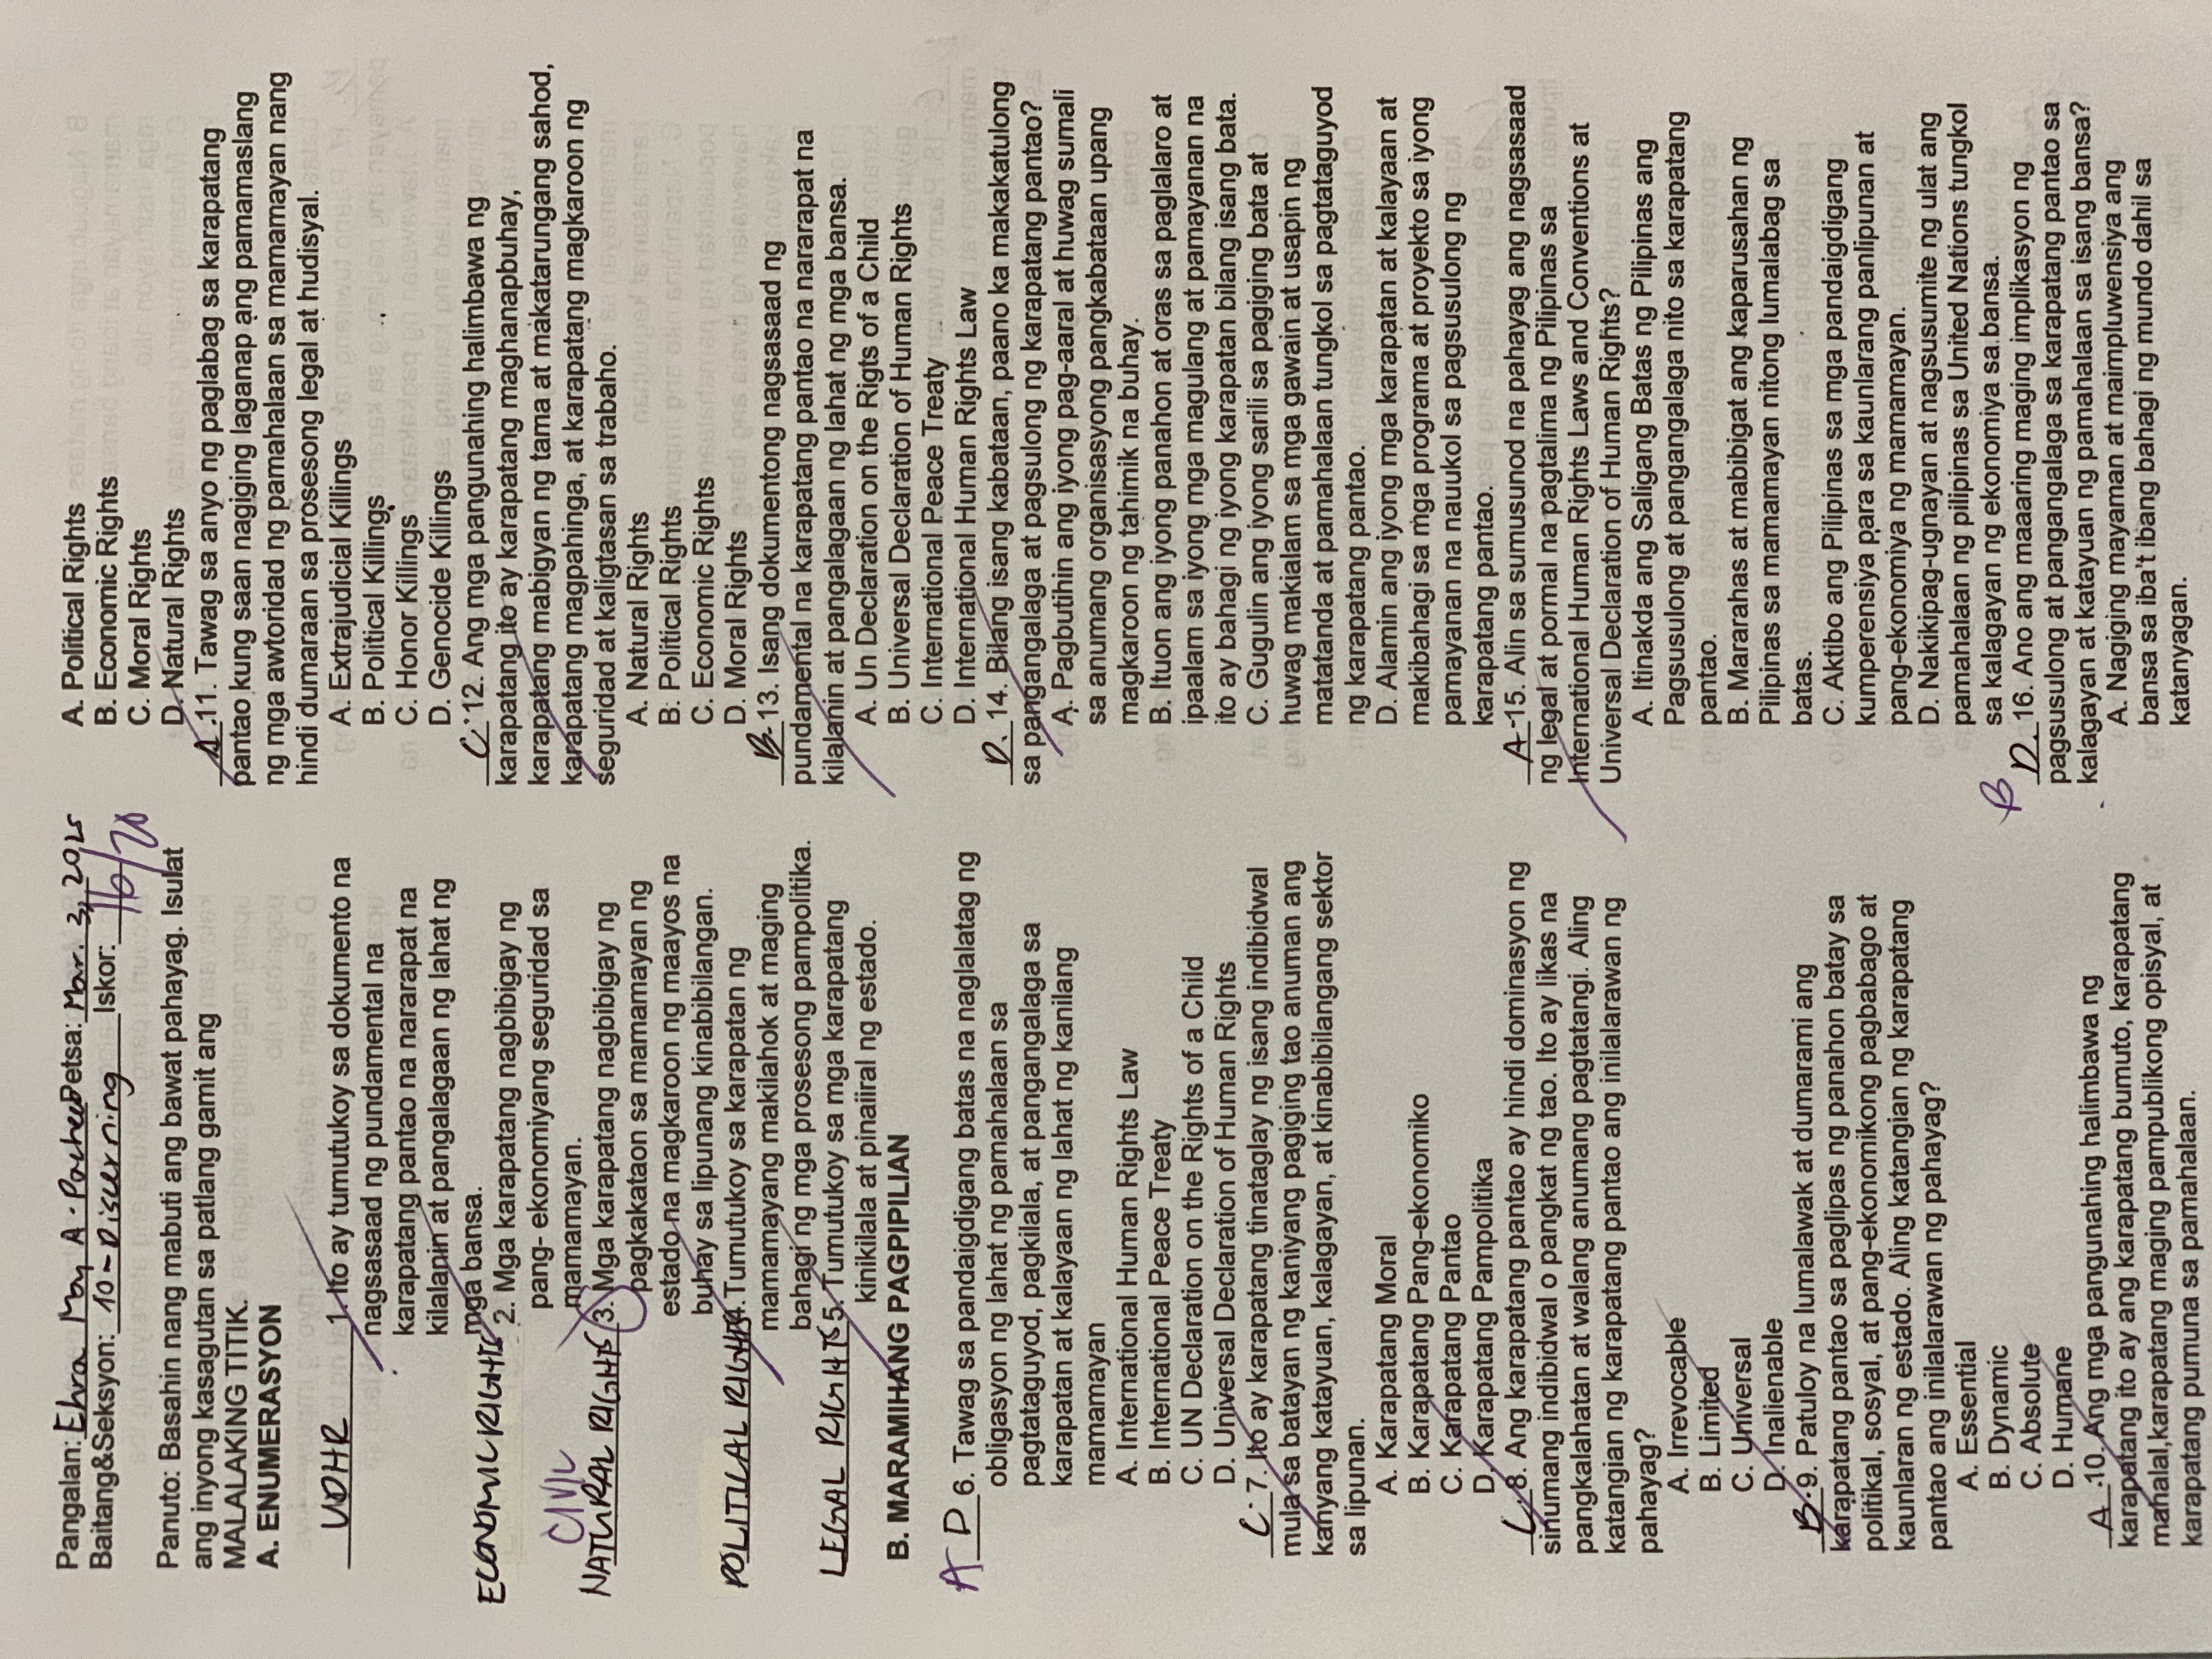 Pangalan: Ehra May A. Pacheco Petsa: Mar. 3, 2025
Baitang&Seksyon: 10 - Discerning Iskor: 16/20
Panuto: Basahin nang mabuti ang bawat pahayag. Isulat
ang inyong kasagutan sa patlang gamit ang
MALALAKING TITIK.
A. ENUMERASYON
UDHR 1. Ito ay tumutukoy sa dokumento na
nagsasaad ng pundamental na
karapatang pantao na nararapat na
kilalanin at pangalagaan ng lahat ng
mga bansa.
ECONOMIC RIGHTS 2. Mga karapatang nagbibigay ng
pang- ekonomiyang seguridad sa
mamamayan.
CIVIL
NATURAL RIGHTS 3. Mga karapatang nagbibigay ng
pagkakataon sa mamamayan ng
estado na magkaroon ng maayos na
buhay sa lipunang kinabibilangan.
POLITICAL RIGHTS 4. Tumutukoy sa karapatan ng
mamamayang makilahok at maging
bahagi ng mga prosesong pampolitika.
LEGAL RIGHTS 5. Tumutukoy sa mga karapatang
kinikilala at pinaiiral ng estado.
B. MARAMIHANG PAGPIPILIAN
A D 6. Tawag sa pandaigdigang batas na naglalatag ng
obligasyon ng lahat ng pamahalaan sa
pagtataguyod, pagkilala, at pangangalaga sa
karapatan at kalayaan ng lahat ng kanilang
mamamayan
A. International Human Rights Law
B. International Peace Treaty
C. UN Declaration on the Rights of a Child
D. Universal Declaration of Human Rights
C. 7. Ito ay karapatang tinataglay ng isang indibidwal
mula sa batayan ng kaniyang pagiging tao anuman ang
kanyang katayuan, kalagayan, at kinabibilangang sektor
sa lipunan.
A. Karapatang Moral
B. Karapatang Pang-ekonomiko
C. Karapatang Pantao
D. Karapatang Pampolitika
C. 8. Ang karapatang pantao ay hindi dominasyon ng
sinumang indibidwal o pangkat ng tao. Ito ay likas na
pangkalahatan at walang anumang pagtatangi. Aling
katangian ng karapatang pantao ang inilalarawan ng
pahayag?
A. Irrevocable
B. Limited
C. Universal
D. Inalienable
B. 9. Patuloy na lumalawak at dumarami ang
karapatang pantao sa paglipas ng panahon batay sa
politikal, sosyal, at pang-ekonomikong pagbabago at
kaunlaran ng estado. Aling katangian ng karapatang
pantao ang inilalarawan ng pahayag?
A. Essential
B. Dynamic
C. Absolute
D. Humane
A .10. Ang mga pangunahing halimbawa ng
karapatang ito ay ang karapatang bumuto, karapatang
mahalal,karapatang maging pampublikong opisyal, at
karapatang pumuna sa pamahalaan.
A. Political Rights
B. Economic Rights
C. Moral Rights
D. Natural Rights
A .11. Tawag sa anyo ng paglabag sa karapatang
pantao kung saan nagiging laganap ang pamamaslang
ng mga awtoridad ng pamahalaan sa mamamayan nang
hindi dumaraan sa prosesong legal at hudisyal.
A. Extrajudicial Killings
B. Political Killings
C. Honor Killings
D. Genocide Killings
C. 12. Ang mga pangunahing halimbawa ng
karapatang ito ay karapatang maghanapbuhay,
karapatang mabigyan ng tama at makatarungang sahod,
karapatang magpahinga, at karapatang magkaroon ng
seguridad at kaligtasan sa trabaho.
A. Natural Rights
B. Political Rights
C. Economic Rights
D. Moral Rights
B. 13. Isang dokumentong nagsasaad ng
pundamental na karapatang pantao na nararapat na
kilalanin at pangalagaan ng lahat ng mga bansa.
A. Un Declaration on the Rigts of a Child
B. Universal Declaration of Human Rights
C. International Peace Treaty
D. International Human Rights Law
D. 14. Bilang isang kabataan, paano ka makakatulong
sa pangangalaga at pagsulong ng karapatang pantao?
A. Pagbutihin ang iyong pag-aaral at huwag sumali
sa anumang organisasyong pangkabataan upang
magkaroon ng tahimik na buhay.
B. Ituon ang iyong panahon at oras sa paglalaro at
ipaalam sa iyong mga magulang at pamayanan na
ito ay bahagi ng iyong karapatan bilang isang bata.
C. Gugulin ang iyong sarili sa pagiging bata at
huwag makialam sa mga gawain at usapin ng
matatanda at pamahalaan tungkol sa pagtataguyod
ng karapatang pantao.
D. Alamin ang iyong mga karapatan at kalayaan at
makibahagi sa mga programa at proyekto sa iyong
pamayanan na nauukol sa pagsusulong ng
karapatang pantao.
A. 15. Alin sa sumusunod na pahayag ang nagsasaad
ng legal at pormal na pagtalima ng Pilipinas sa
International Human Rights Laws and Conventions at
Universal Declaration of Human Rights?
A. Itinakda ang Saligang Batas ng Pilipinas ang
Pagsusulong at pangangalaga nito sa karapatang
pantao.
B. Mararahas at mabibigat ang kaparusahan ng
Pilipinas sa mamamayan nitong lumalabag sa
batas.
C. Aktibo ang Pilipinas sa mga pandaigdigang
kumperensiya para sa kaunlarang panlipunan at
pang-ekonomiya ng mamamayan.
D. Nakikipag-ugnayan at nagsusumite ng ulat ang
pamahalaan ng pilipinas sa United Nations tungkol
sa kalagayan ng ekonomiya sa bansa.
B D. 16. Ano ang maaaring maging implikasyon ng
pagsusulong at pangangalaga sa karapatang pantao sa
kalagayan at katayuan ng pamahalaan sa isang bansa?
A. Nagiging mayaman at maimpluwensiya ang
bansa sa iba't ibang bahagi ng mundo dahil sa
katanyagan.